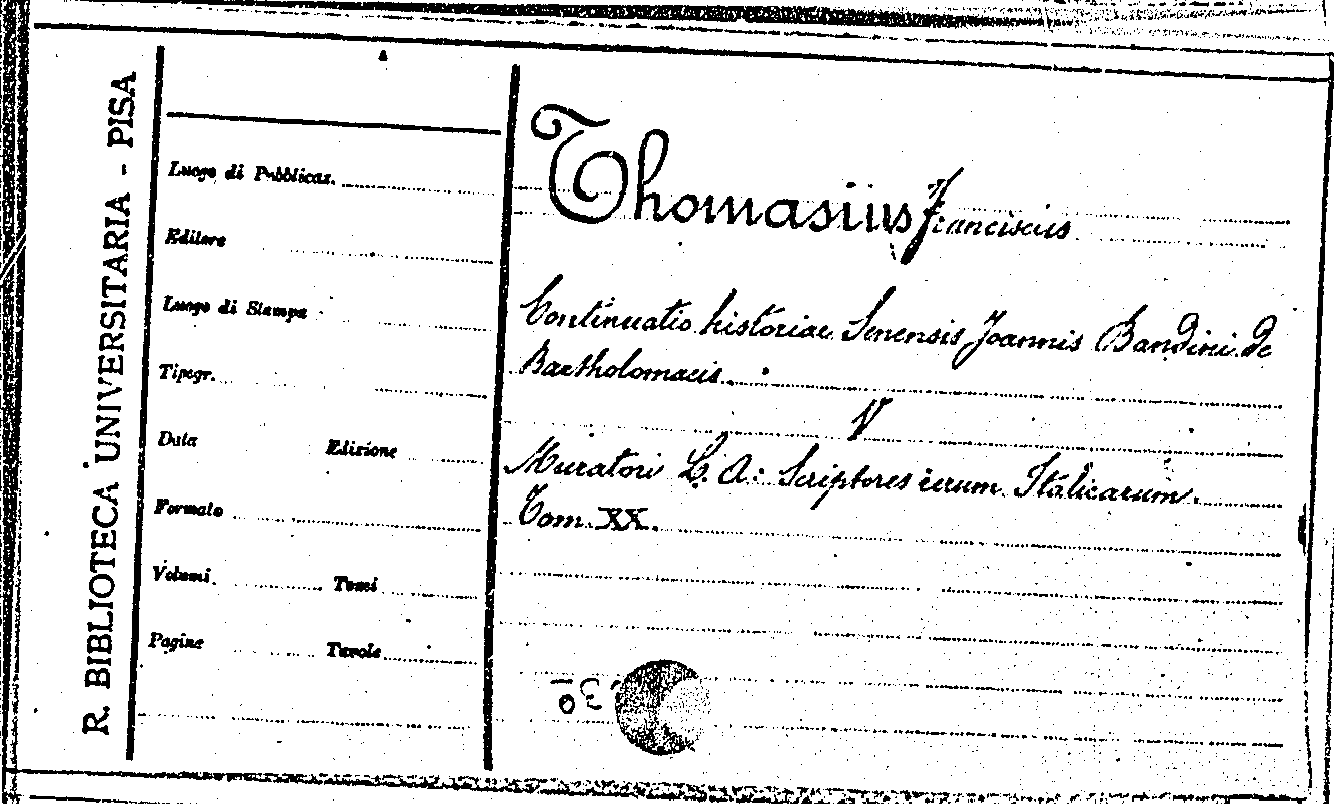 R. BIBLIOTECA UNIVERSITARIA - PISA
Luogo di Pubblicaz.
Editore
Luogo di Stampa
Tipogr.
Data Edizione
Formato
Volumi Tomi
Pagine Tavole
Thomasius Franciscus
Continuatio historiae Senensis Joannis Bandini de
Bartholomaeis.
V
Muratori L. A: Scriptores rerum Italicarum.
Tom. XX.